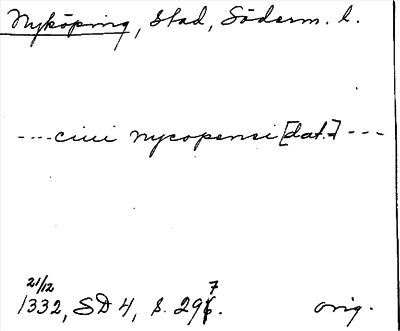 Nyköping, Stad, Söderm. l.
----ciui nycopensi [dat.] ---
21/12
1332, SD 4, s. 297. orig.